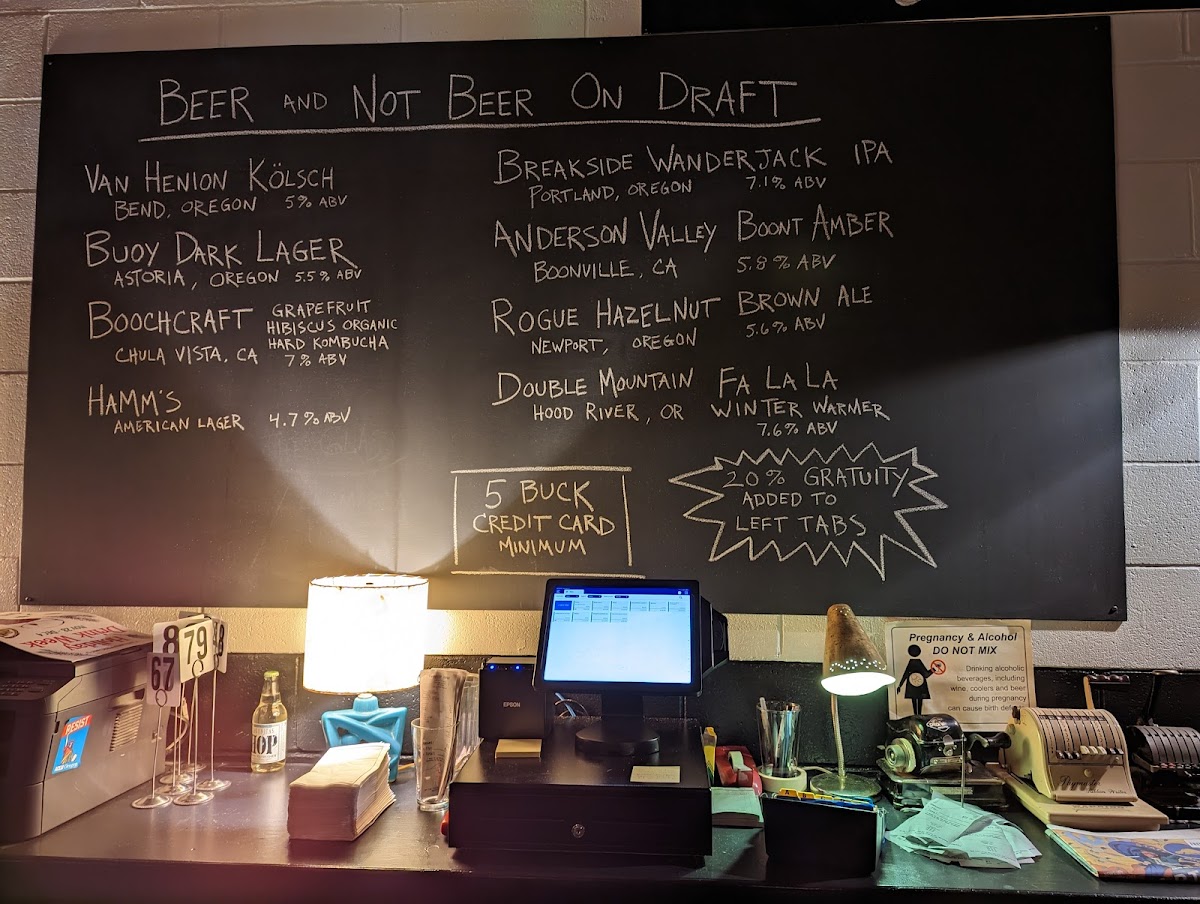 BEER AND NOT BEER ON DRAFT
VAN HENION KÖLSCH
BEND, OREGON 5% ABV
BUOY DARK LAGER
ASTORIA, OREGON 5.5% ABV
BOOCHCRAFT GRAPEFRUIT
HIBISCUS ORGANIC
HARD KOMBUCHA
CHULA VISTA, CA 7% ABV
HAMM'S
AMERICAN LAGER 4.7% ABV
BREAKSIDE WANDERJACK IPA
PORTLAND, OREGON 7.1% ABV
ANDERSON VALLEY BOONT AMBER
BOONVILLE, CA 5.8% ABV
ROGUE HAZELNUT BROWN ALE
NEWPORT, OREGON 5.6% ABV
DOUBLE MOUNTAIN FA LA LA
HOOD RIVER, OR WINTER WARMER
7.6% ABV
5 BUCK
CREDIT CARD
MINIMUM
20% GRATUITY
ADDED TO
LEFT TABS
Pregnancy & Alcohol
DO NOT MIX
Drinking alcoholic
beverages, including
wine, coolers and beer
during pregnancy
can cause birth
79
67
RESIST
HOP
EPSON